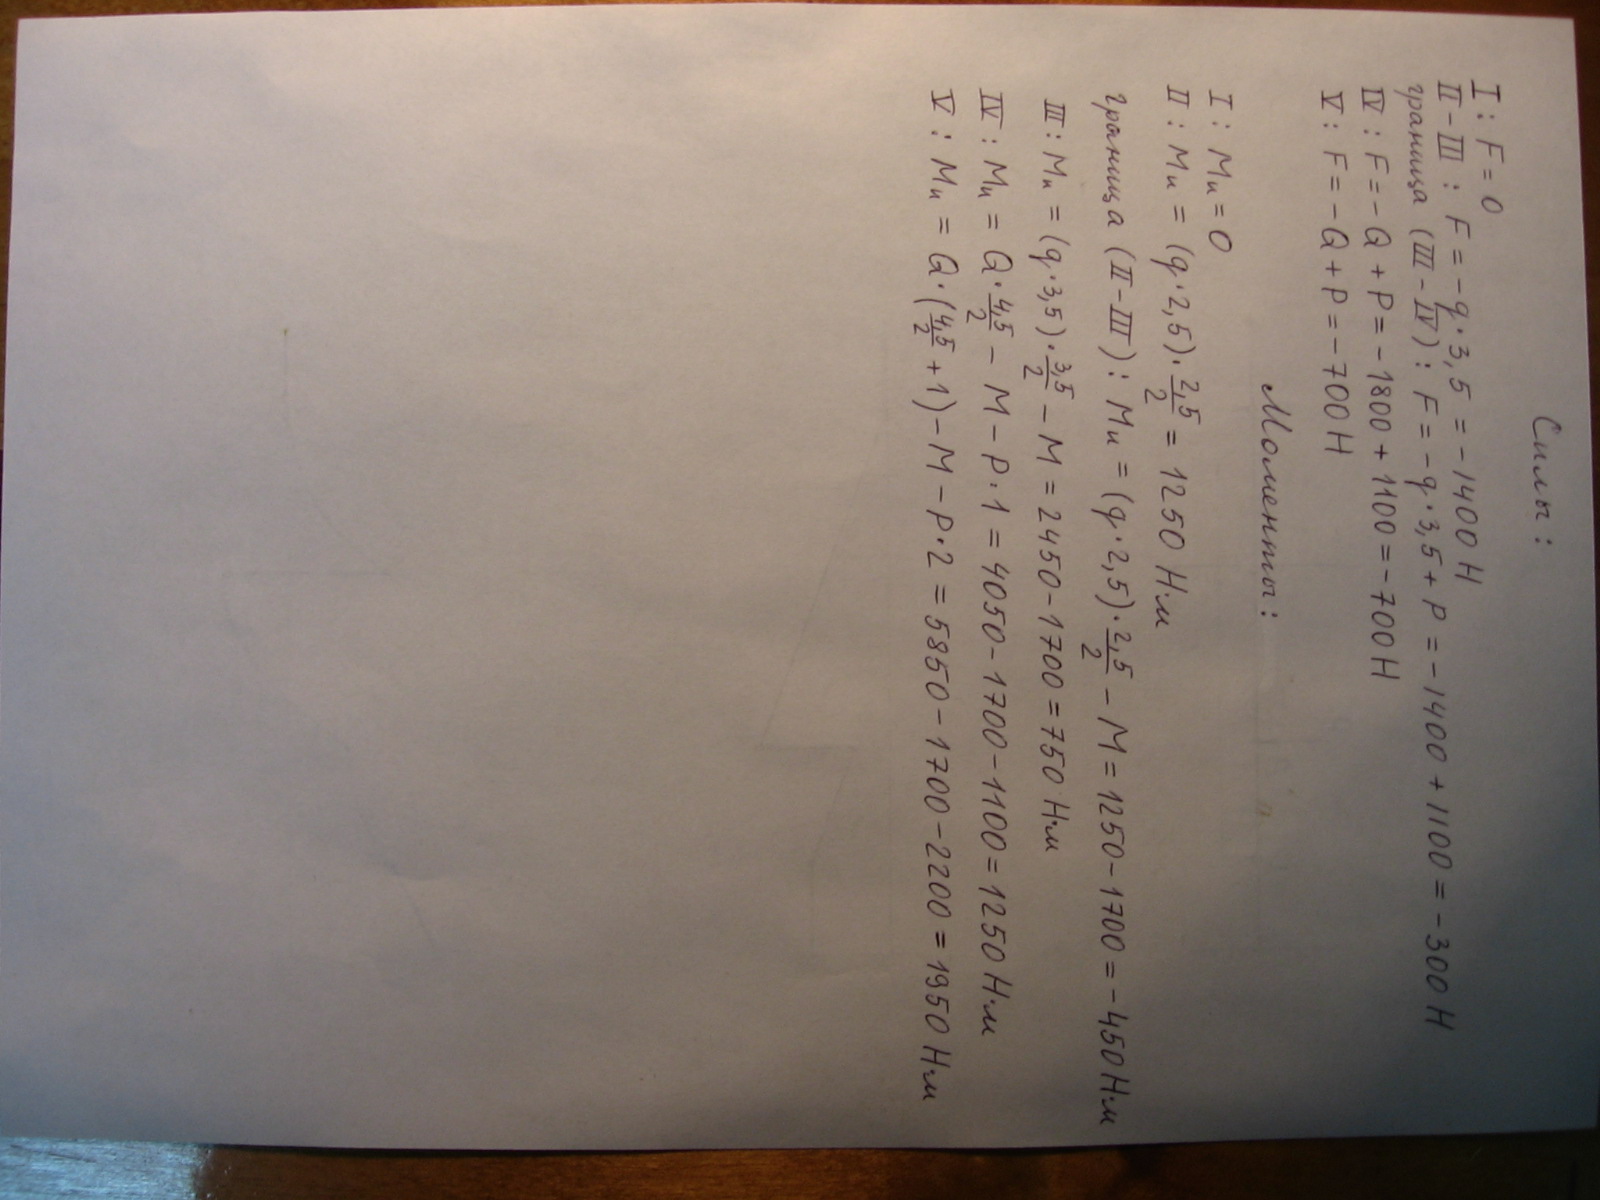 Силы:
I: F = 0
II - III : F = - q · 3,5 = - 1400 Н
граница (III - IV) : F = - q · 3,5 + P = - 1400 + 1100 = - 300 Н
IV : F = - Q + P = - 1800 + 1100 = - 700 Н
V : F = - Q + P = - 700 Н
Моменты:
I : Mи = 0
II : Mи = (q · 2,5) · 2,5/2 = 1250 Н·м
граница (II - III) : Mи = (q · 2,5) · 2,5/2 - M = 1250 - 1700 = - 450 Н·м
III : Mи = (q · 3,5) · 3,5/2 - M = 2450 - 1700 = 750 Н·м
IV : Mи = Q · 4,5/2 - M - P · 1 = 4050 - 1700 - 1100 = 1250 Н·м
V : Mи = Q · (4,5/2 + 1) - M - P · 2 = 5850 - 1700 - 2200 = 1950 Н·м